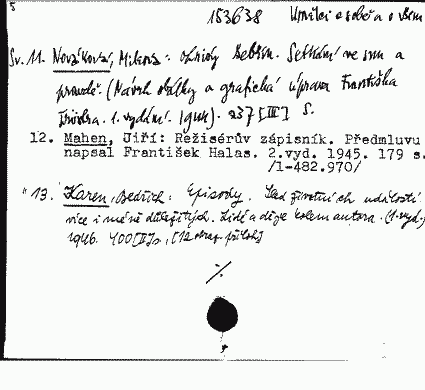 5
153638 Umělci o sobě a o všem
Sv. 11. Nováková, Milena: Ohnivý Setkání ve snu a
pravdě. (Návrh obálky a grafická úprava Františka
1. vydání. 237 [III] s.
12. Mahen, Jiří: Režisérův zápisník. Předmluvu
napsal František Halas. 2.vyd. 1945. 179 s.
/1-482.970/
" 13. Karen, Bedřich: Epizody. Sled životních událostí
více i méně důležitých. Lidé a děje kolem autora. (1. vyd.)
1946. 400 [II] s., [12 obraz. příloh]
·/·